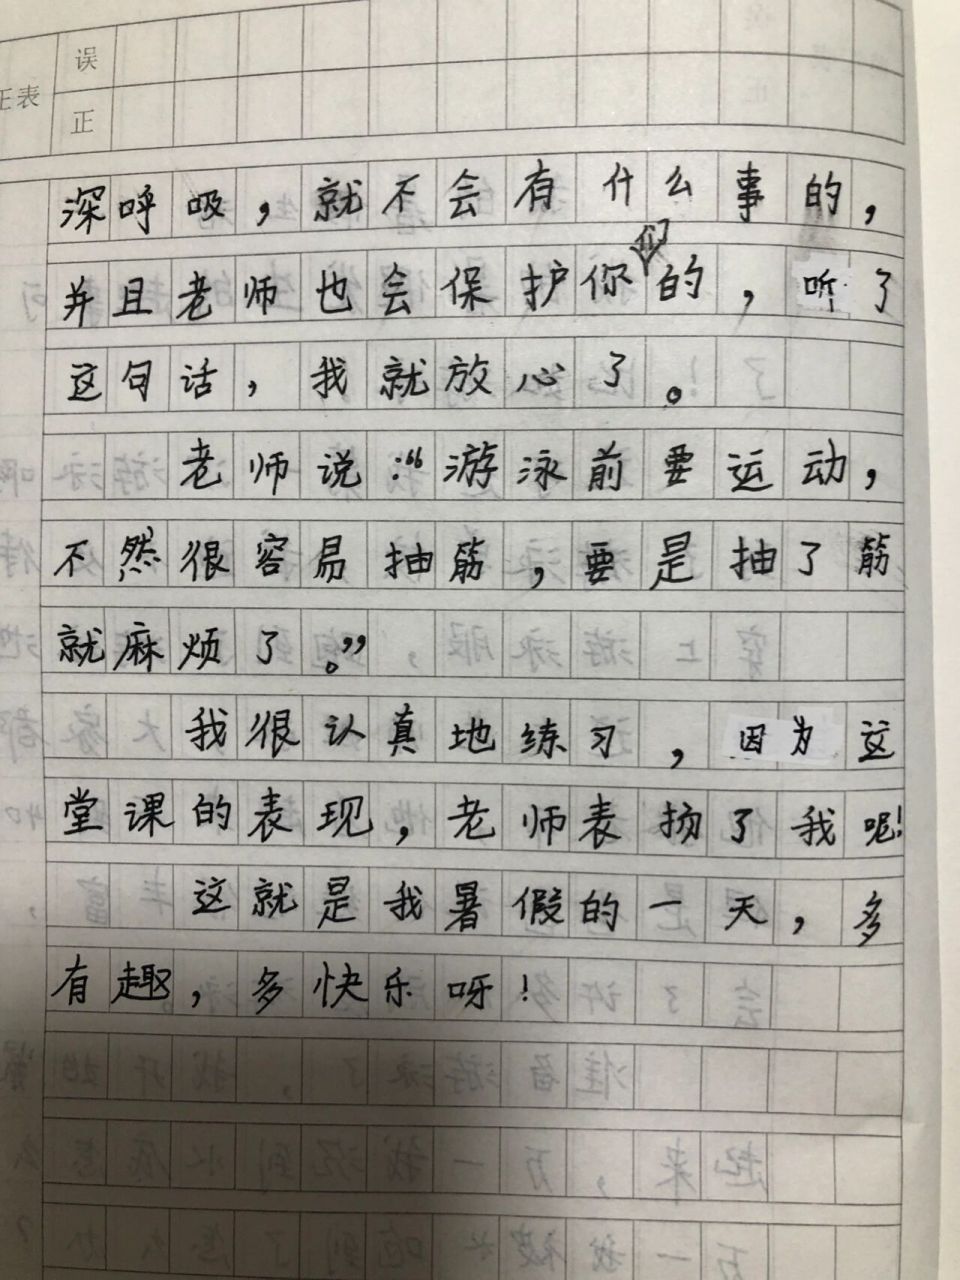 误
正表
正
深呼吸，就不会有什么事的，
并且老师也会保护你们的，听了
这句话，我就放心了。
老师说：“游泳前要运动，
不然很容易抽筋，要是抽了筋
就麻烦了。”
我很认真地练习，因为这
堂课的表现，老师表扬了我呢！
这就是我暑假的一天，多
有趣，多快乐呀！